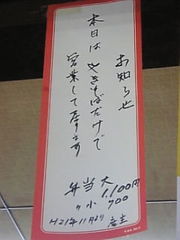 お知らせ
本日は やきそばだけで
営業して居ります
弁当大 1,100円
〃 小 700
H21年11月
店主